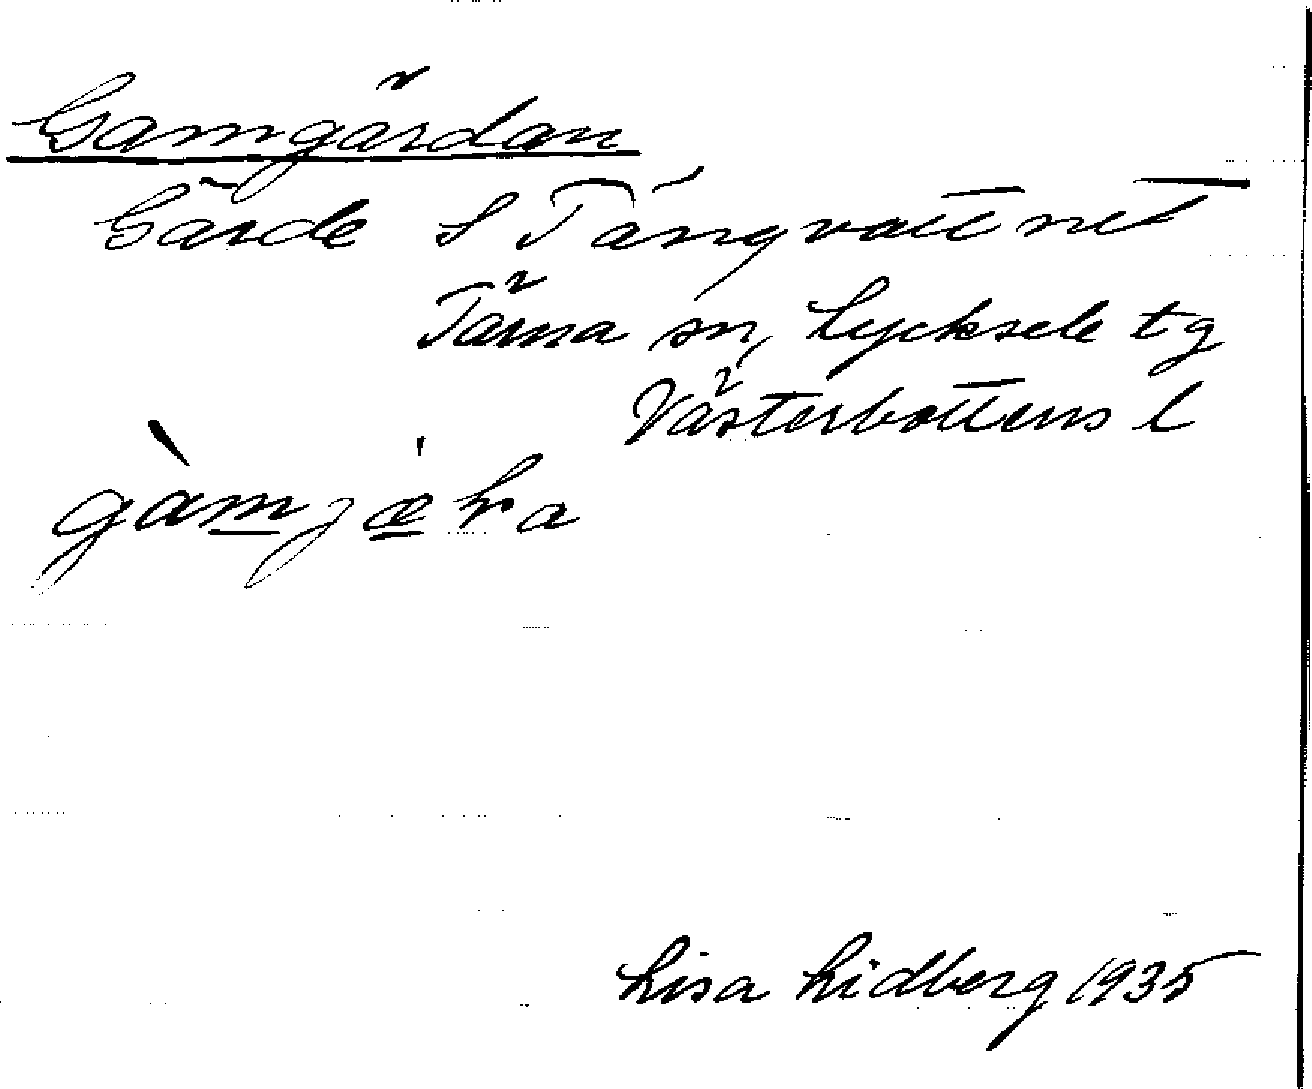 Gamgärdan
Gärde S Tängvattnet
Tärna sn, Lycksele tg
Västerbottens l
gàmjæ̀ra
Lisa Lidberg 1935